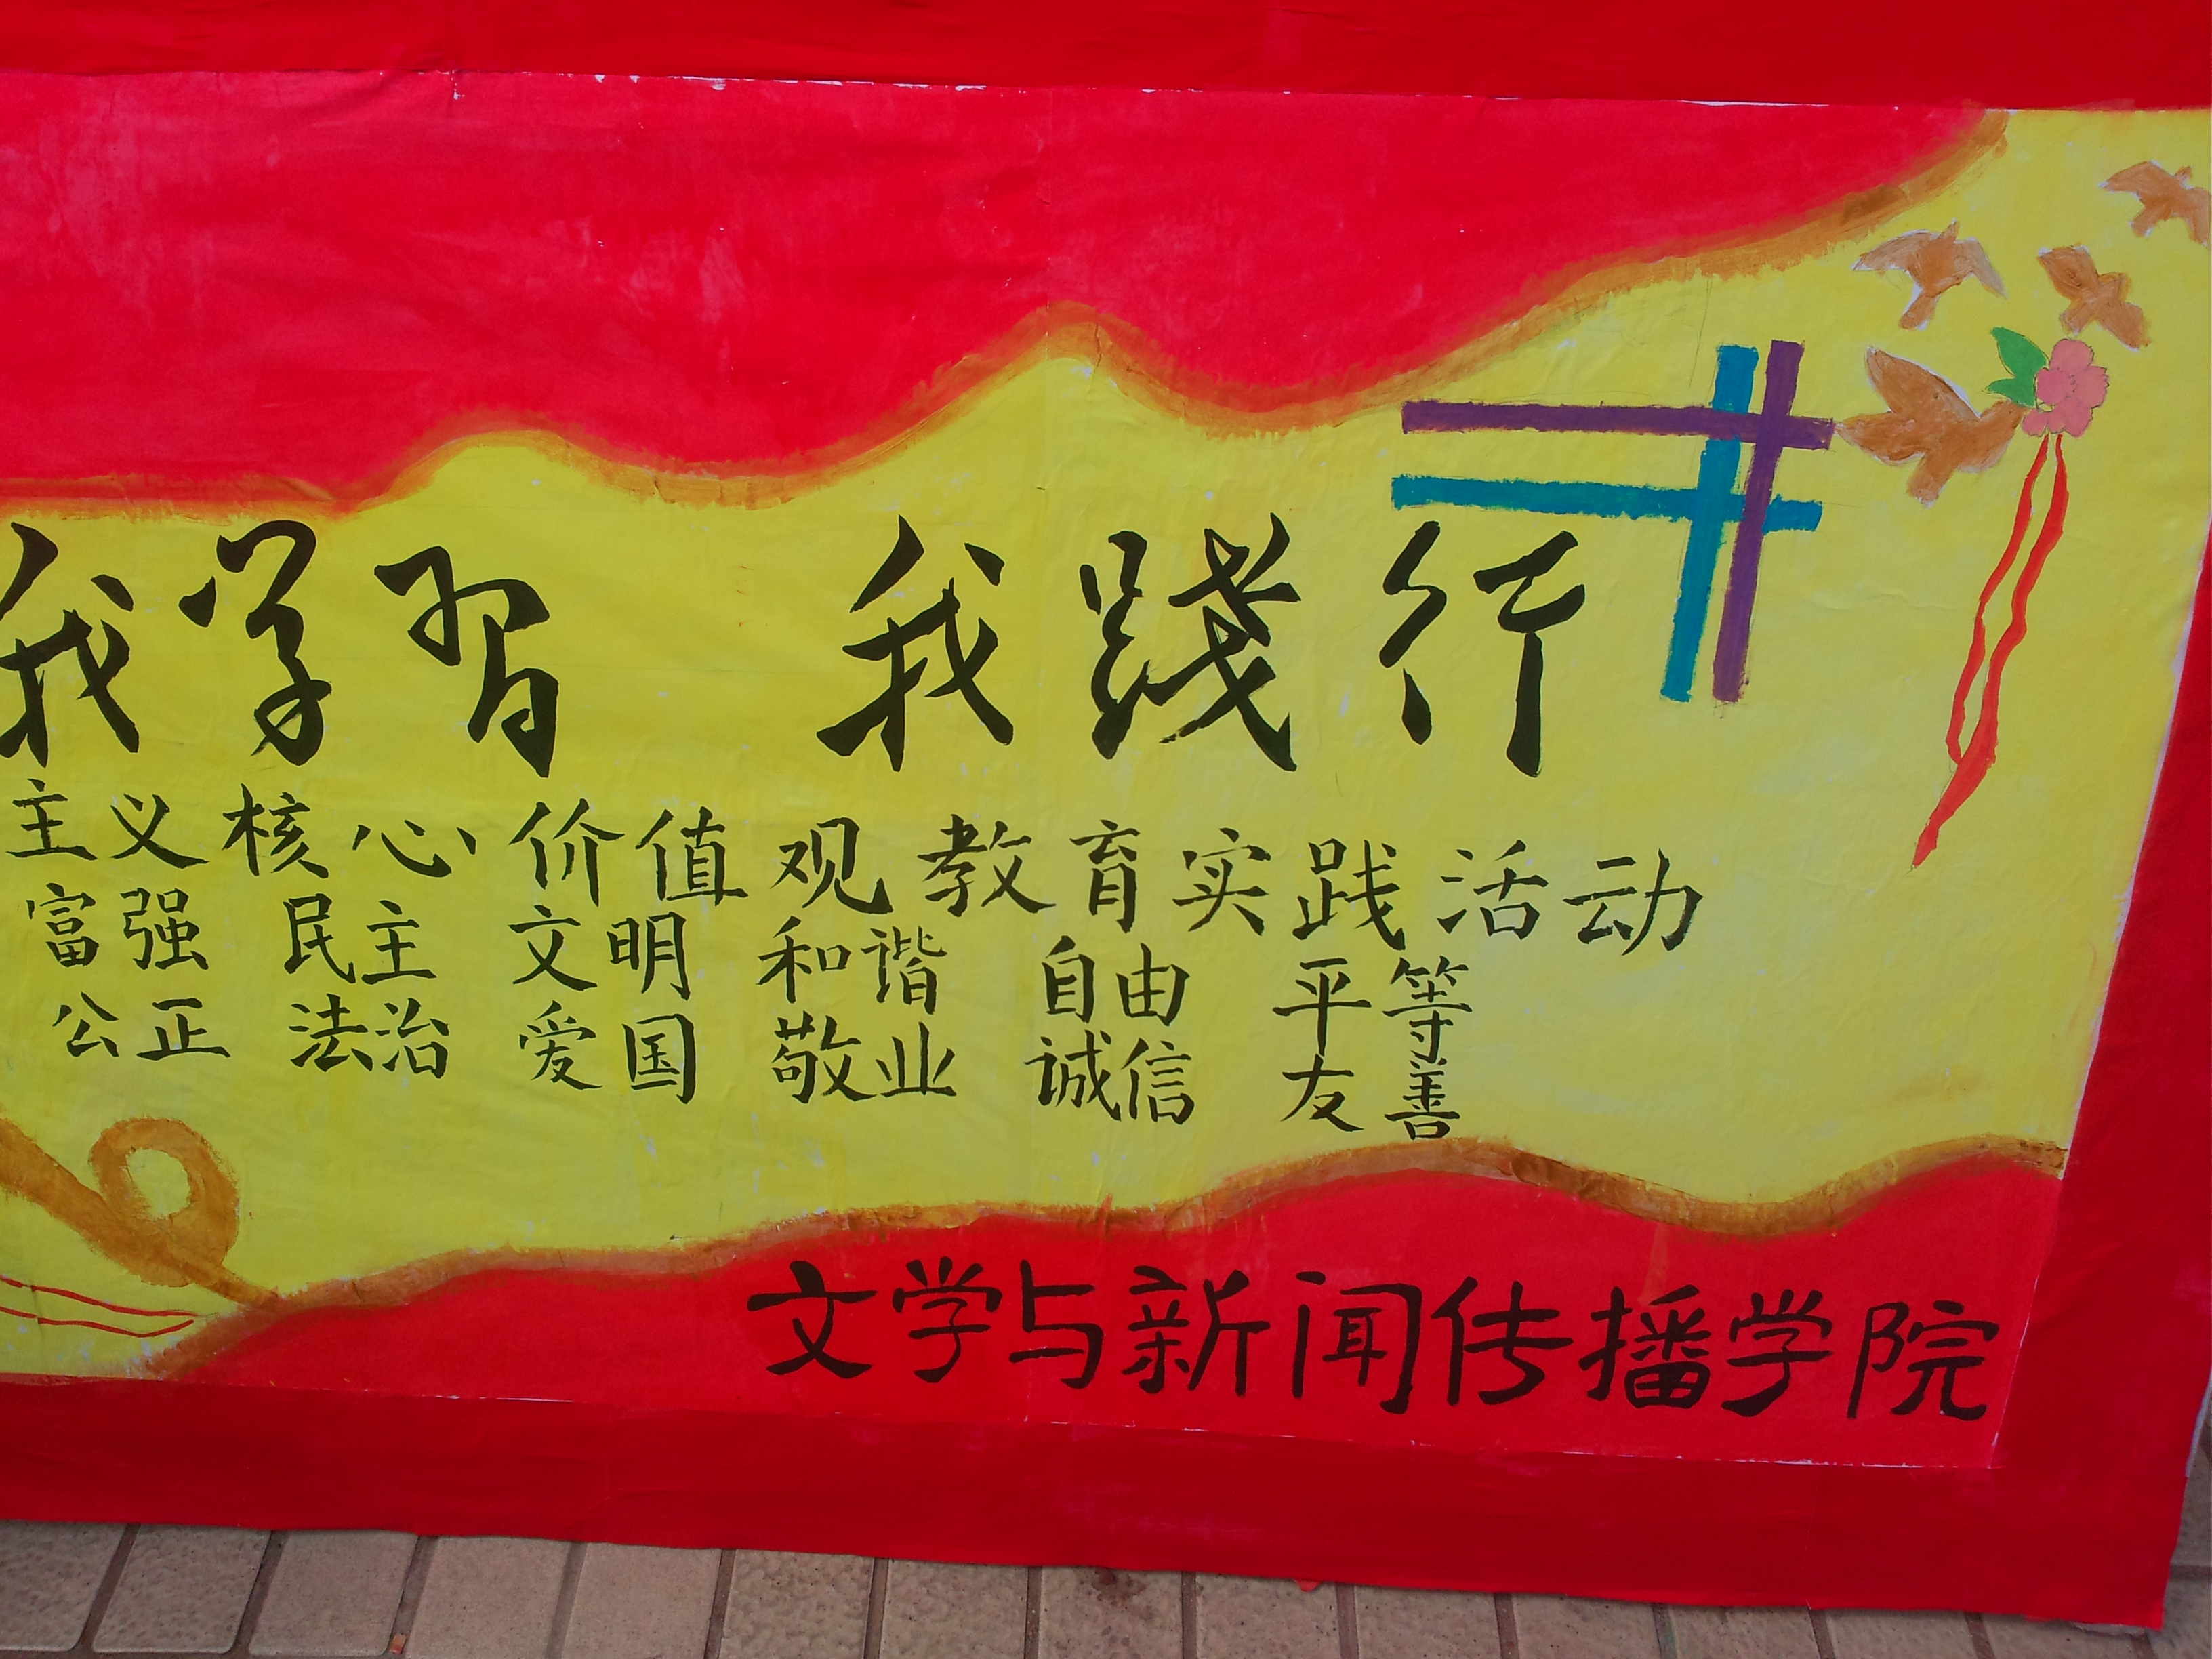 我学习 我践行
主义核心价值观教育实践活动
富强 民主 文明 和谐 自由 平等
公正 法治 爱国 敬业 诚信 友善
文学与新闻传播学院